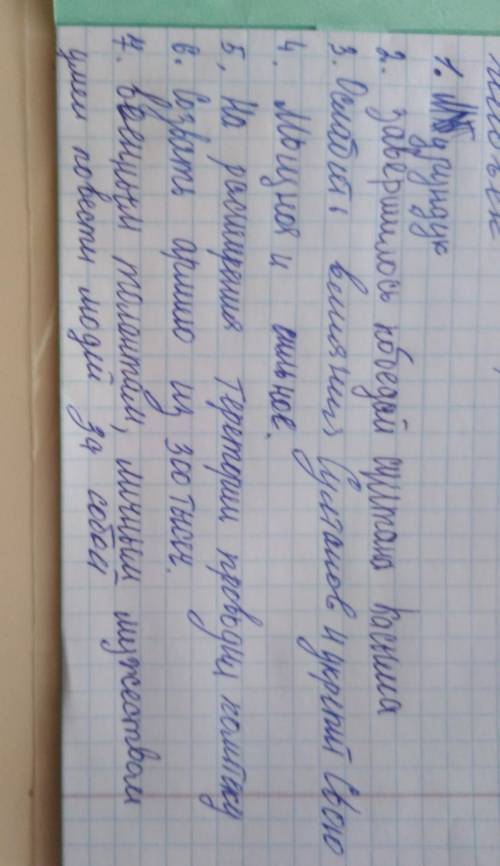 1. Бурундук
2. завершилось победой султана Касима
3. Ослабить влияния Султанов и укрепил свою
4. Мощное и сильное.
5. На расширения территории проводил политику
6. Создать армию из 300 тысяч.
7. Военными талантами, личным мужеством
умел повести людей за собой